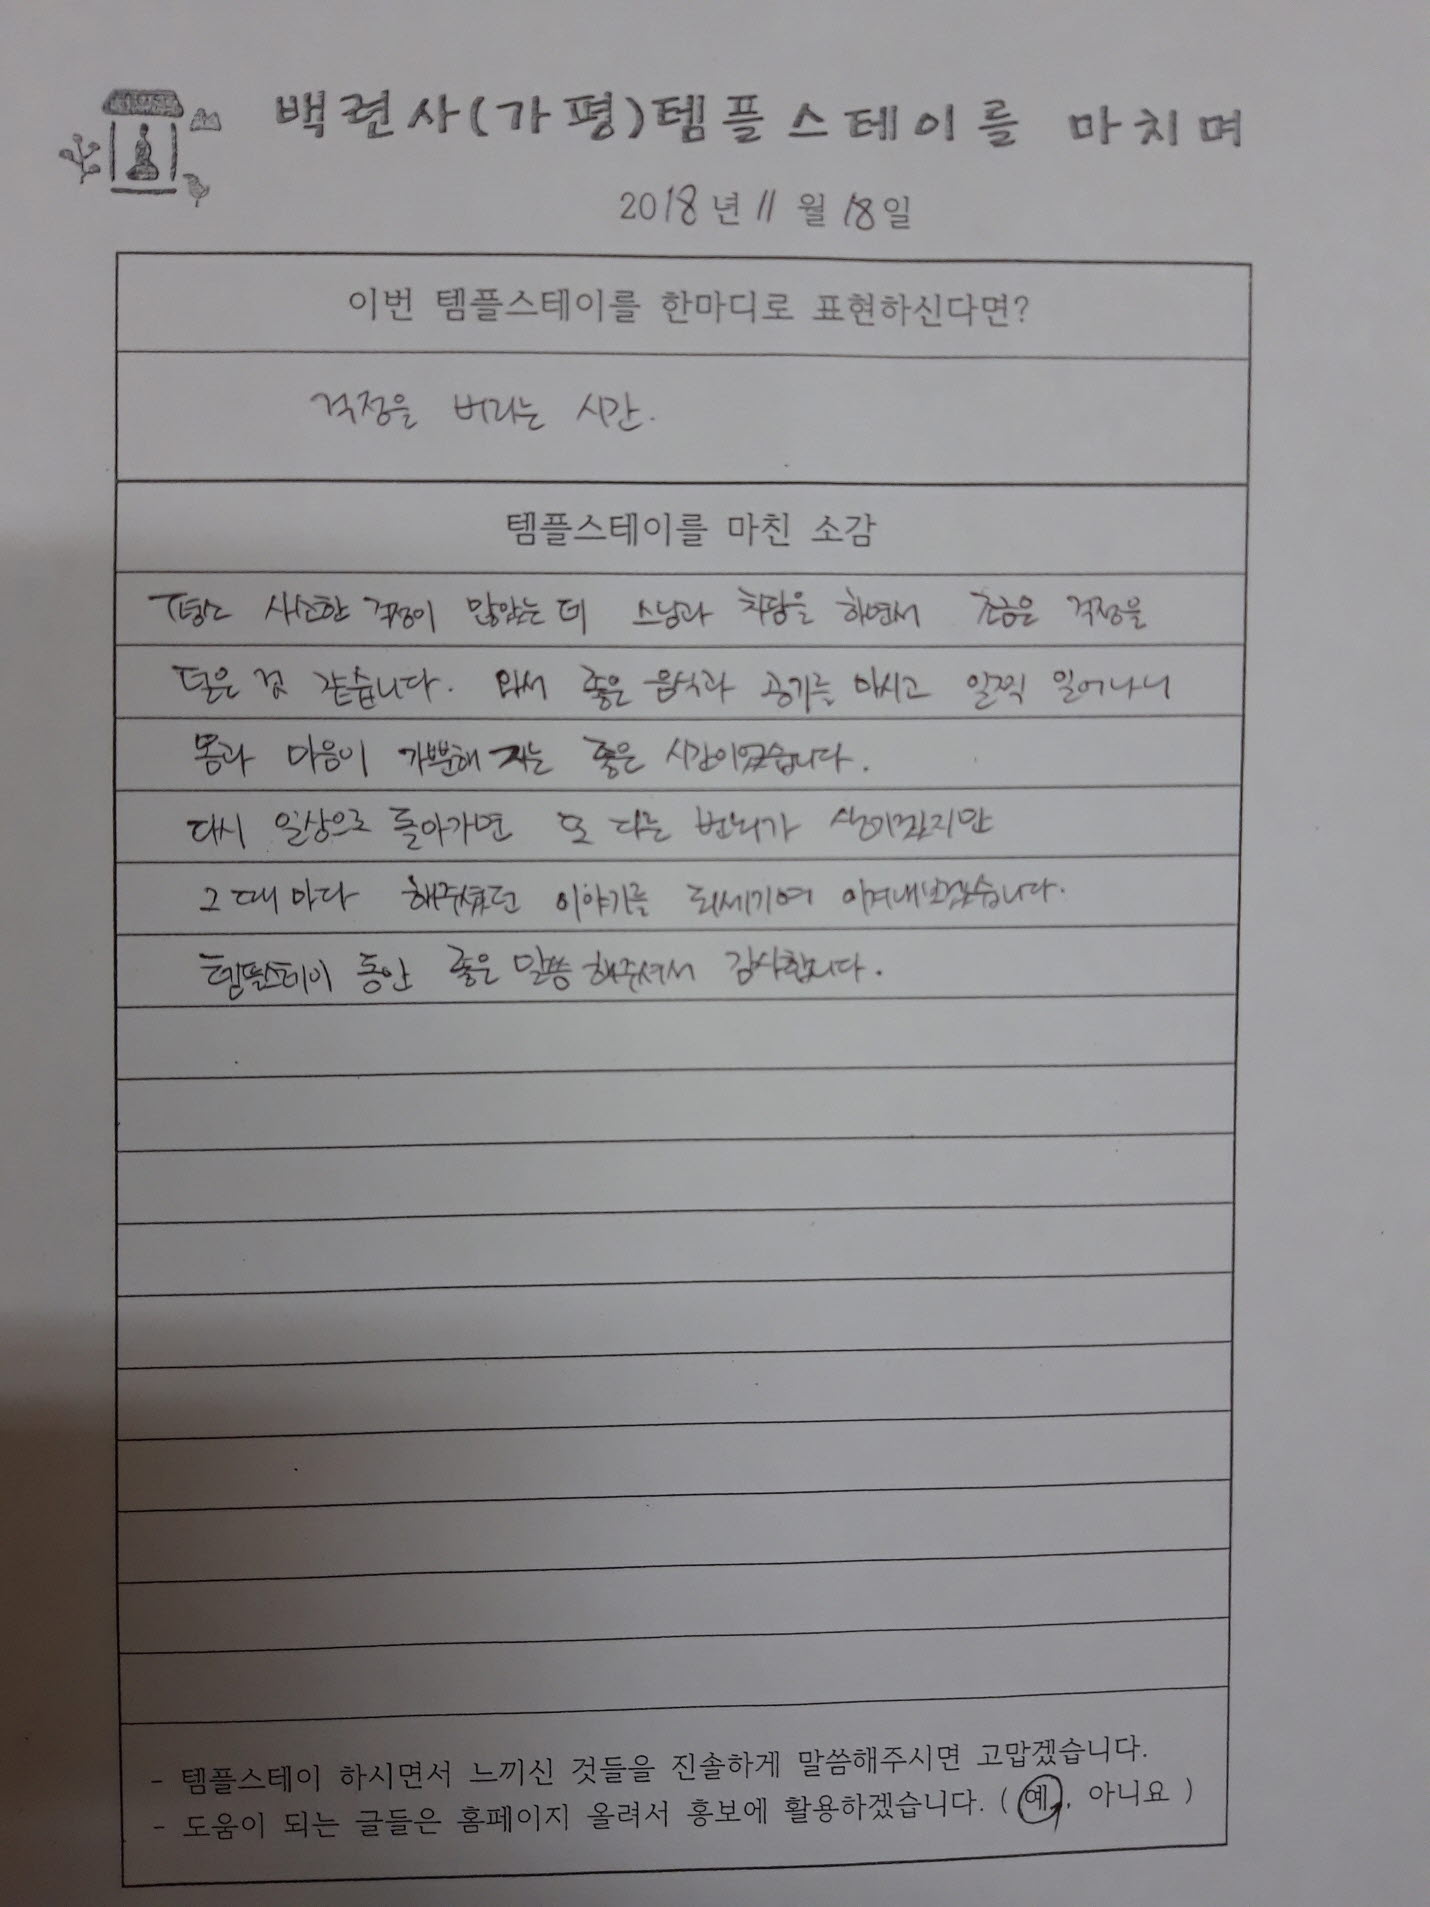 백련사(가평)템플스테이를 마치며
2018년 11월 18일
이번 템플스테이를 한마디로 표현하신다면?
걱정을 버리는 시간.
템플스테이를 마친 소감
평소 사소한 걱정이 많았는데 스님과 차담을 하면서 조금은 걱정을
덜은 것 같습니다. 와서 좋은 음식과 공기를 마시고 일찍 일어나니
몸과 마음이 가뿐해 지는 좋은 시간이었습니다.
다시 일상으로 돌아가면 또 다른 번뇌가 생기겠지만
그 때마다 해주셨던 이야기를 되세기며 이겨내보겠습니다.
템플스테이 동안 좋은 말씀 해주셔서 감사합니다.
- 템플스테이 하시면서 느끼신 것들을 진솔하게 말씀해주시면 고맙겠습니다.
- 도움이 되는 글들은 홈페이지 올려서 홍보에 활용하겠습니다. ( 예, 아니요 )